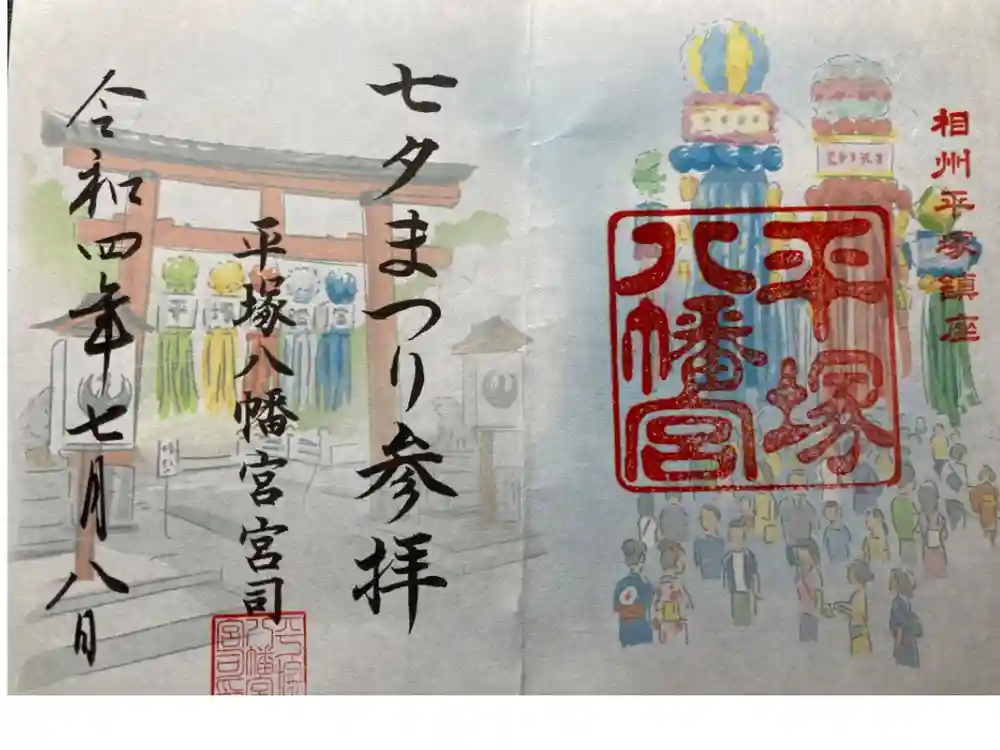 相州平塚鎮座
平塚
八幡宮
七夕まつり参拝
平塚八幡宮宮司
令和四年七月八日